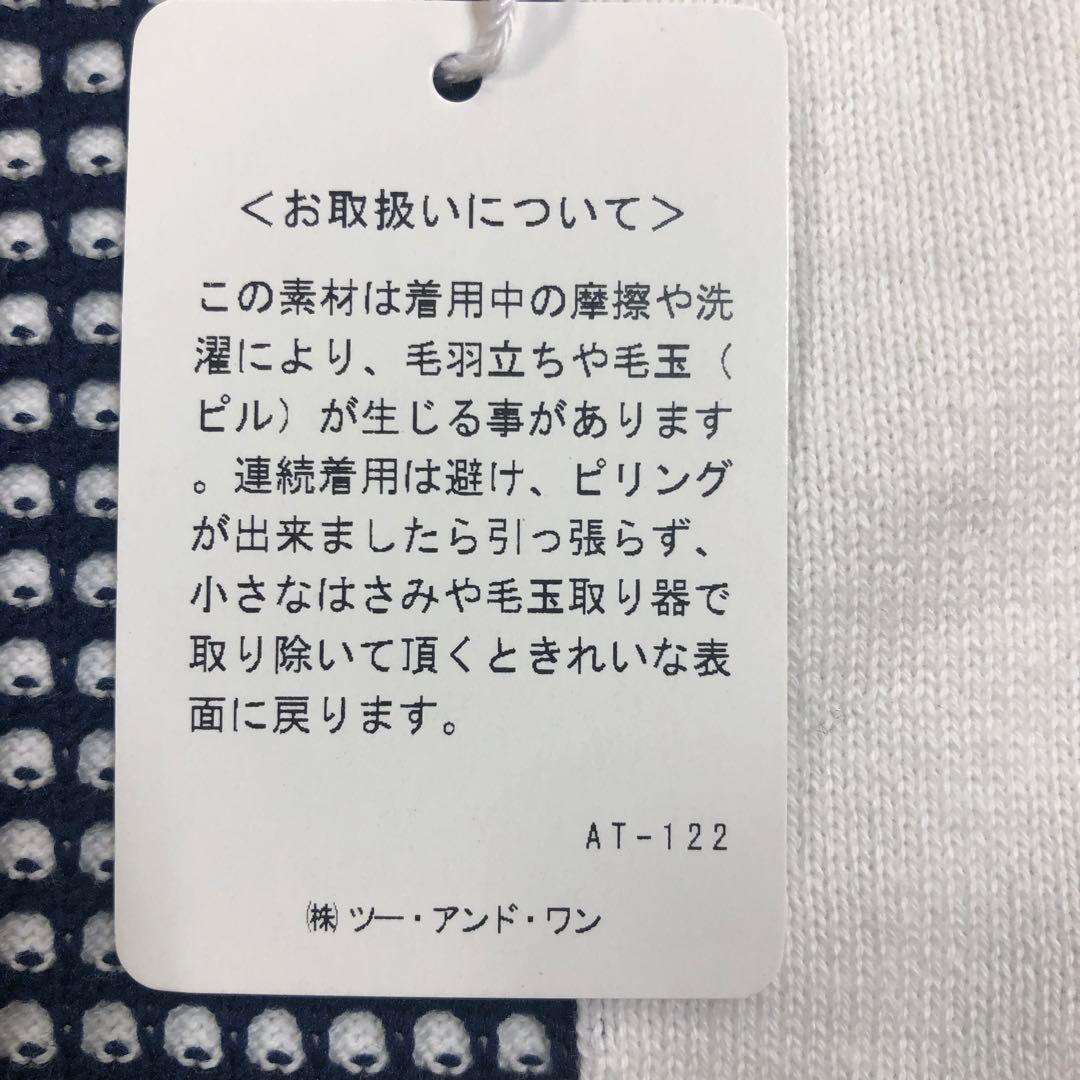 ＜お取扱いについて＞
この素材は着用中の摩擦や洗
濯により、毛羽立ちや毛玉（
ピル）が生じる事があります
。連続着用は避け、ピリング
が出来ましたら引っ張らず、
小さなはさみや毛玉取り器で
取り除いて頂くときれいな表
面に戻ります。
AT-122
㈱ツー・アンド・ワン